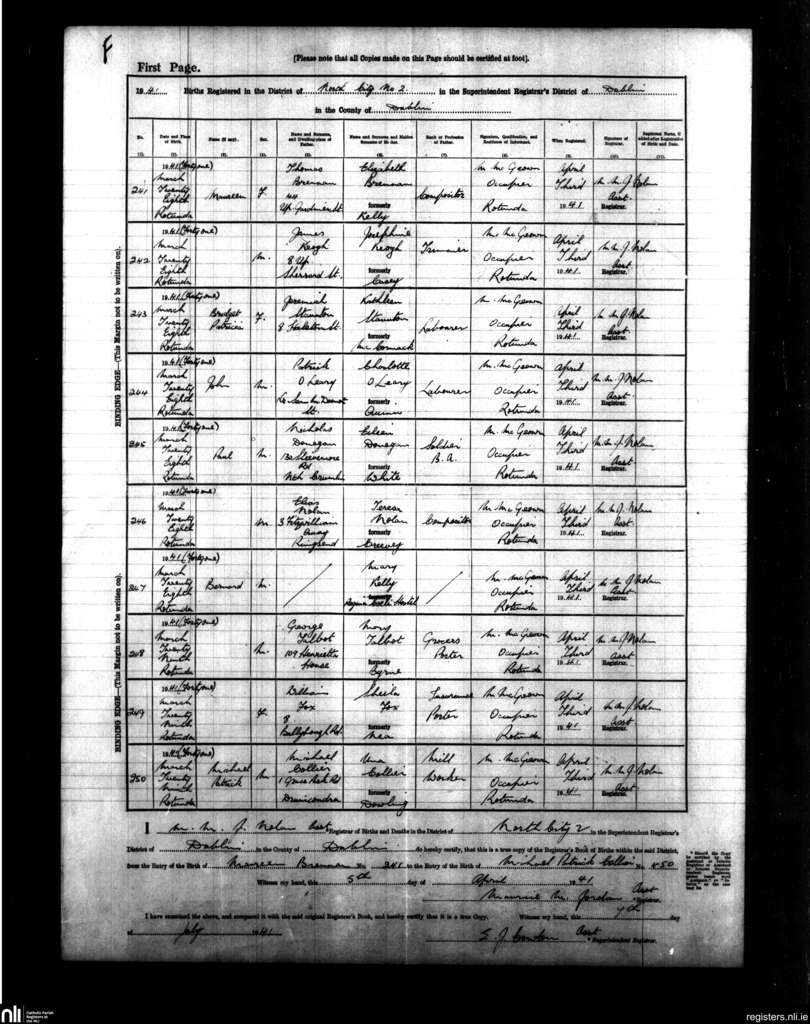 F
[Please note that all Copies made on this Page should be certified at foot].
First Page.
1941 Births Registered in the District of North City No 2 in the Superintendent Registrar's District of Dublin
in the County of Dublin
No. Date and Place of Birth. Name (if any). Sex. Name and Surname, and Dwelling-place of Father. Name and Surname and Maiden Surname of Mother. Rank or Profession of Father. Signature, Qualification, and Residence of Informant. When Registered. Signature of Registrar.
(1). (2). (3). (4). (5). (6). (7). (8). (9). (10). (11).
241 1941 (Forty one) March Twenty Eighth Rotunda Maureen F. Thomas Brennan 44 Up. Gardiner St. Elizabeth Brennan formerly Kelly Compositor M. McGeown Occupier Rotunda April Third 1941. M. M. J. Nolan Asst Registrar.
242 1941 (Forty one) March Twenty Eighth Rotunda M. James Keogh 8 Up. Sherrard St. Josephine Keogh formerly M. McGeown Occupier Rotunda April Third 1941. M. M. J. Nolan Asst Registrar.
243 1941 (Forty one) March Twenty Eighth Rotunda Bridget Patricia F. Jeremiah Staunton 8 St. Kathleen Staunton formerly McCormack Labourer M. McGeown Occupier Rotunda April Third 1941. M. M. J. Nolan Asst Registrar.
244 1941 (Forty one) March Twenty Eighth Rotunda John M. Patrick O'Leary St. Charlotte O'Leary formerly Quinn Labourer M. McGeown Occupier Rotunda April Third 1941. M. M. J. Nolan Asst Registrar.
245 1941 (Forty one) March Twenty Eighth Rotunda Paul M. Nicholas Donegan Rd Nth Crumlin Eileen Donegan formerly White Soldier B.A. M. McGeown Occupier Rotunda April Third 1941. M. M. J. Nolan Asst Registrar.
246 1941 (Forty one) March Twenty Eighth Rotunda M. Nolan 3 Fitzwilliam Quay Ringsend Teresa Nolan formerly Creevey Compositor M. McGeown Occupier Rotunda April Third 1941. M. M. J. Nolan Asst Registrar.
247 1941 (Forty one) March Twenty Eighth Rotunda Bernard M. Mary Kelly Regina Coeli Hostel M. McGeown Occupier Rotunda April Third 1941. M. M. J. Nolan Asst Registrar.
248 1941 (Forty one) March Twenty Ninth Rotunda M. George Talbot 109 Henrietta House Mary Talbot formerly Byrne Grocers Porter M. McGeown Occupier Rotunda April Third 1941. M. M. J. Nolan Asst Registrar.
249 1941 (Forty one) March Twenty Ninth Rotunda F. William Fox 8 Ballybough Rd. Sheila Fox formerly Porter M. McGeown Occupier Rotunda April Third 1941 M. M. J. Nolan Asst Registrar.
250 1941 (Forty one) March Twenty Ninth Rotunda Michael Patrick M. Michael Collier 1 Grace Park Rd Drumcondra Una Collier formerly Dowling Mill Worker M. McGeown Occupier Rotunda April Third 1941 M. M. J. Nolan Asst Registrar.
BINDING EDGE—(This Margin not to be written on).
BINDING EDGE—(This Margin not to be written on).
I M. M. J. Nolan Asst Registrar of Births and Deaths in the District of North City 2 in the Superintendent Registrar's
District of Dublin in the County of Dublin do hereby certify, that this is a true copy of the Registrar's Book of Births within the said District,
from the Entry of the Birth of Maureen Brennan No. 241 to the Entry of the Birth of Michael Patrick Collier No. 250
Witness my hand, this 5th day of April 1941
Asst Registrar.
I have examined the above, and compared it with the said original Registrar's Book, and hereby certify that it is a true Copy. Witness my hand, this 4th day
of July 1941 Asst Superintendent Registrar.
nli
Catholic Parish
Registers at
the NLI
registers.nli.ie